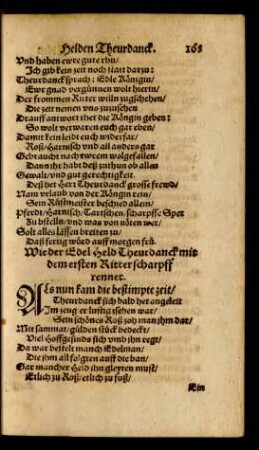 Helden Theurdanck. 168
Vnd haben ewre gute rhu/
Ich gib kein zeit noch statt darzu:
Theurdanck sprach: Edle Köngin/
Ewr gnad vergünnen wolt hierin/
Der frommen Ritter willn zugschehen/
Die zeit nemen vns zuzusehen
Drauff antwort jhet die Köngin geben:
So wolt verwaren euch gar eben/
Damit kein leidt euch widerfar/
Roß/Harnisch vnd all anders gar
Gebraucht nach ewrem wolgefallen/
Dann jhr habt deß zuthun ob allen
Gewalt/vnd gut gerechtigkeit.
Deß het Herr Theurdanck grosse frewd/
Nam vrlaub von der Köngin rein/
Sein Rüstmeister beschied allein/
Pferdt/Harnisch/Tartschen/scharpffe Sper
Zu bstelln/vnd was von nöten wer/
Solt alles lassen breiten zu/
Daß fertig würd auff morgen frü.
Wie der Edel Held Theurdanck mit
dem ersten Ritter scharpff
rennet.
Als nun kam die bestimpte zeit/
Theurdanck sich bald het angeleit
Im zeug er lustig zsehen war/
Sein schönes Roß zoh man jhm dar/
Mit sammat/gülden stück bedeckt/
Viel Hoffgesinds sich vmb jhn regt/
Da war bestelt manch Edelman/
Die jhm all folgten auff die ban/
Gar mancher Held jhn gleyten must/
Etlich zu Roß/etlich zu fuß/
Ein